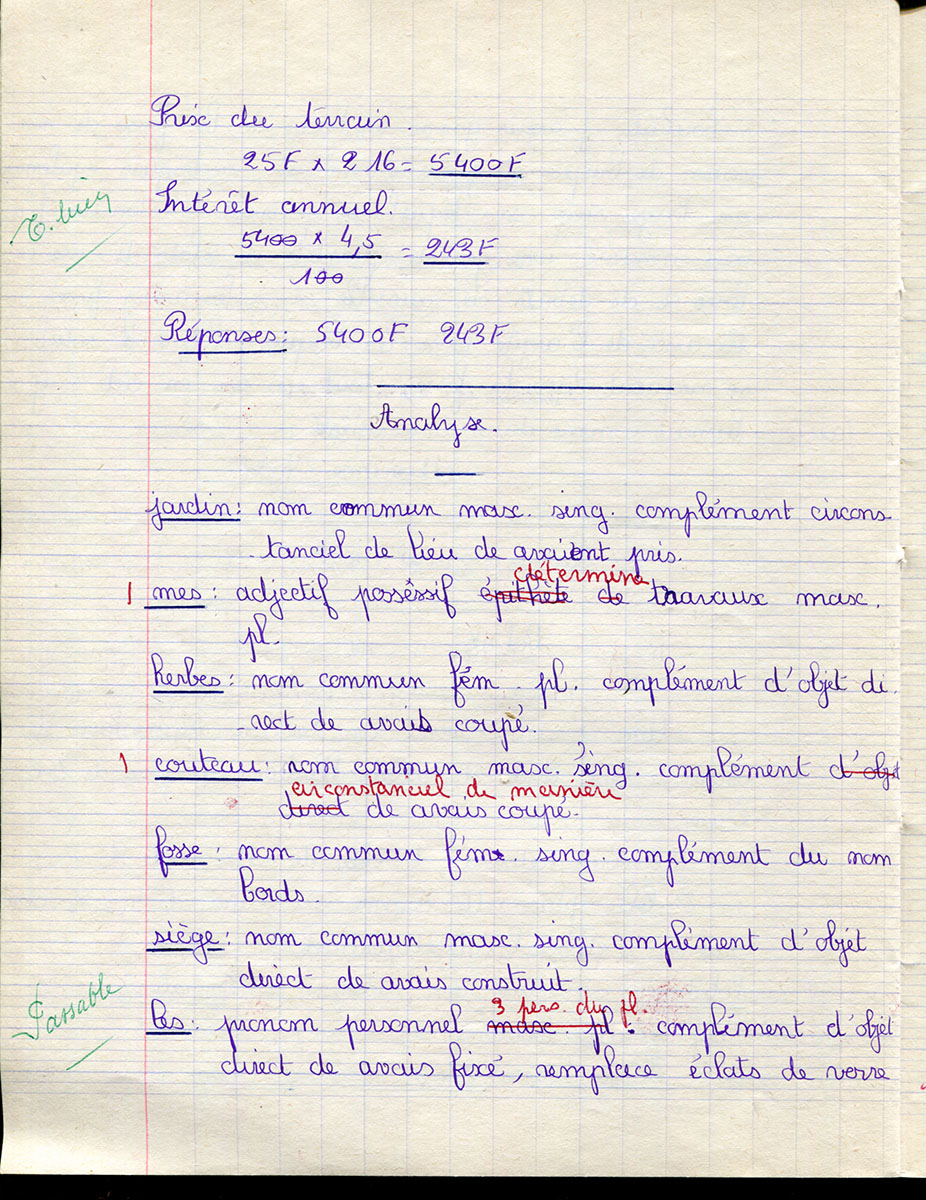 Prix du terrain.
25F x 216 = 5400F
T. bien
Intérêt annuel.
5400 x 4,5 = 243F
100
Réponses: 5400F 243F
Analyse.
jardin: nom commun masc. sing. complément circons
-tanciel de lieu de avaient pris.
détermine
1 mes: adjectif possêssif épithète de travaux masc.
pl.
herbes: nom commun fém. pl. complément d'objet di
-rect de avais coupé.
1 couteau: nom commun masc. sing. complément d'objet
circonstanciel de manière
direct de avais coupé.
fosse: nom commun fém. sing. complément du nom
bords.
siège: nom commun masc. sing. complément d'objet
direct de avais construit.
Passable
3 pers. du pl.
les: pronom personnel masc. pl. complément d'objet
direct de avais fixé, remplace éclats de verre